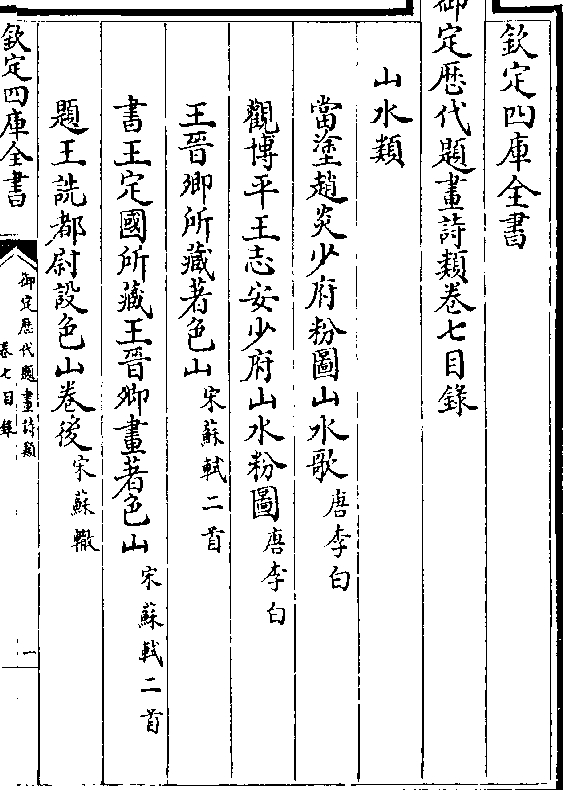 欽定四庫全書
御定歴代題畫詩類卷七目錄
山水類
當塗趙炎少府粉圖山水歌 唐李白
觀博平王志安少府山水粉圖 唐李白
王晉卿所藏著色山 宋蘇軾二首
書王定國所藏王晉卿畫著色山 宋蘇軾二首
題王詵都尉設色山卷後 宋蘇轍
欽定四庫全書
御定歴代題畫詩類
卷七目錄
一